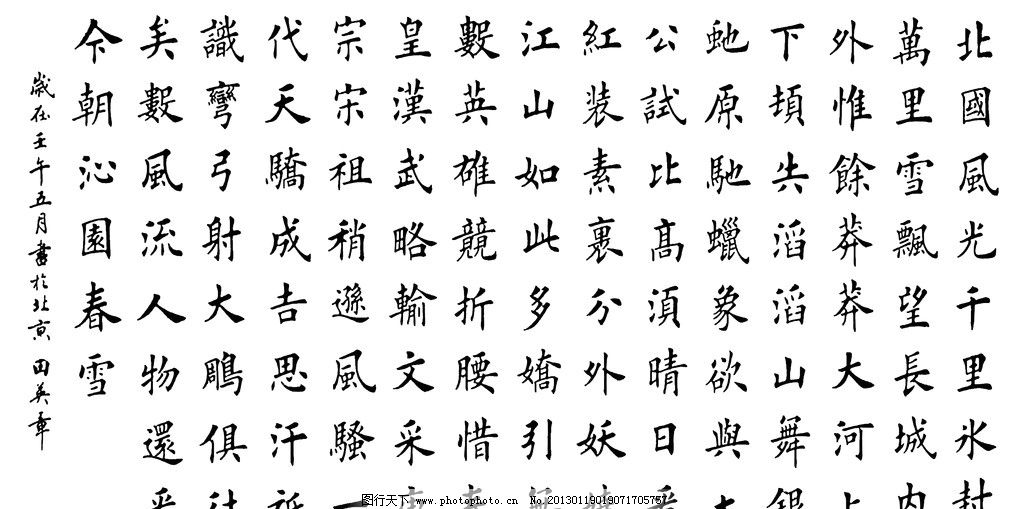 北國風光千里氷封
萬里雪飄望長城内
外惟餘莽莽大河上
下頓失滔滔山舞銀
虵原馳蠟象欲與
公試比高須晴日看
紅装素裹分外妖
江山如此多嬌引無
數英雄競折腰惜
皇漢武略輸文采
宗宋祖稍遜風騷一
代天驕成吉思汗
識彎弓射大鵰俱
矣數風流人物還
今朝沁園春雪
歲在壬午五月書於北京 田英章
图行天下 www.photophoto.cn No.20130119019071705757